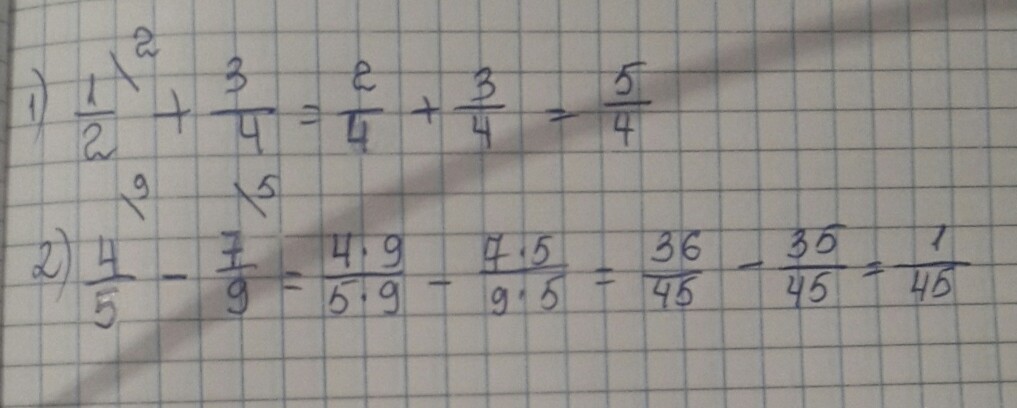 1) 1/2 \2 + 3/4 = 2/4 + 3/4 = 5/4
2) 4/5 \9 - 7/9 \5 = 4·9/5·9 - 7·5/9·5 = 36/45 - 35/45 = 1/45